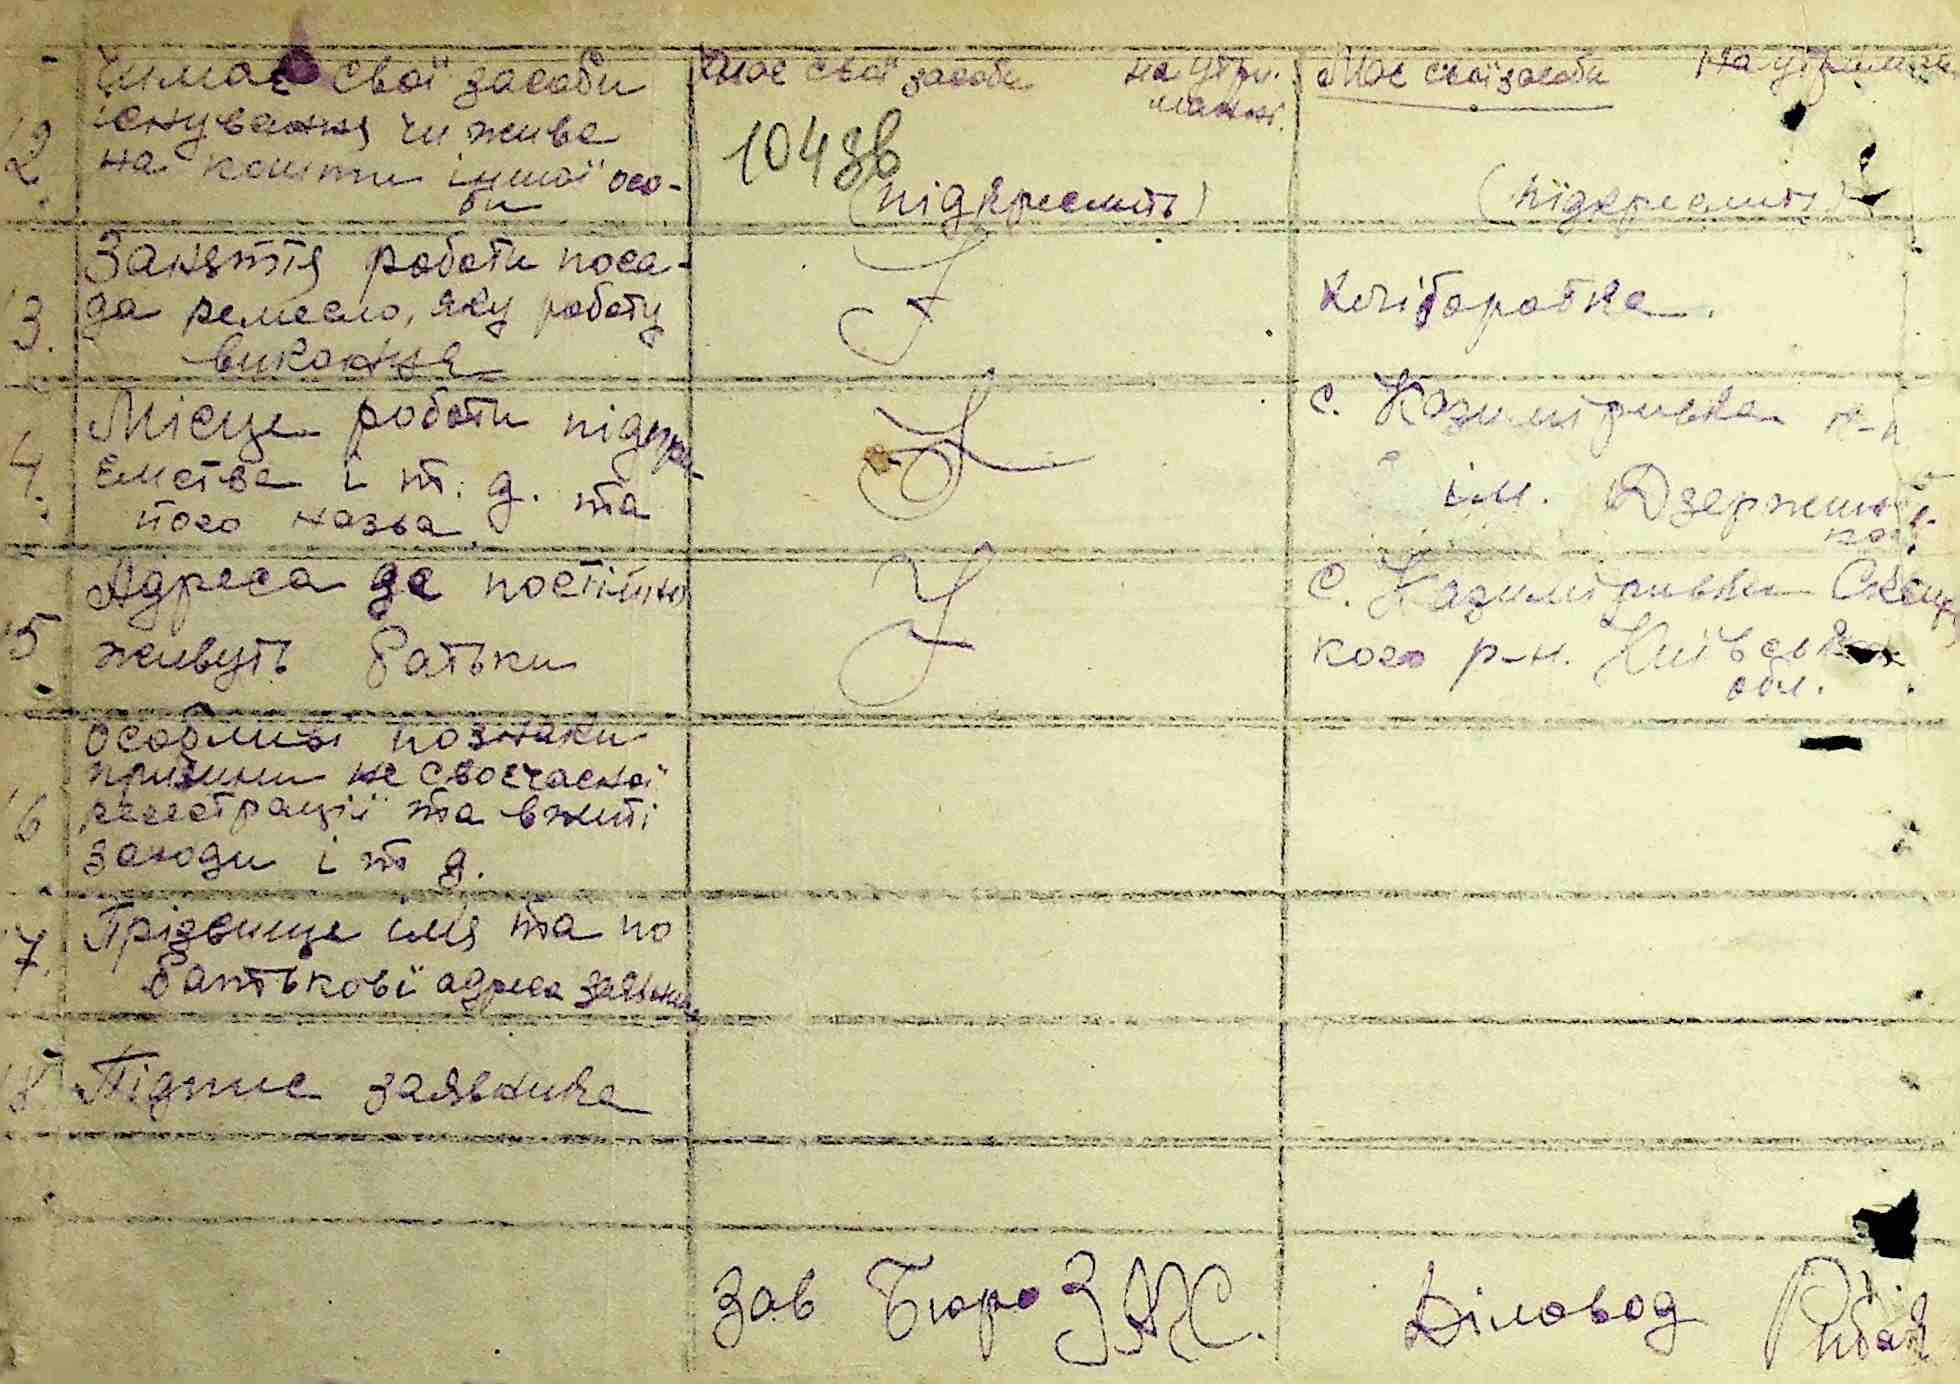 12. Чи має свої засоби
існування чи живе
на кошти іншої осо-
би
має свої засоби на утри-
манні.
104 зв
(підкреслить)
Має свої засоби на утриман
(підкреслить)
13. Заняття роботи поса-
да ремесло, яку роботу
виконня
хліборобка.
14. Місце роботи підпри-
ємства і т. д. та
його назва
с. Казимірувка к-п
ім. Дзержинс
ко
15. Адреса де постійно
живуть батьки
с. Казимірувка
кого р-н. Київськ
обл.
16. Особливі познаки
причини не своєчасної
реєстрації та вжиті
заходи і т д.
17. Прізвище імя та по
батькові адреса заявник
18. Підпис заявника
Зав Бюро ЗАГС.
Діловод Рибак